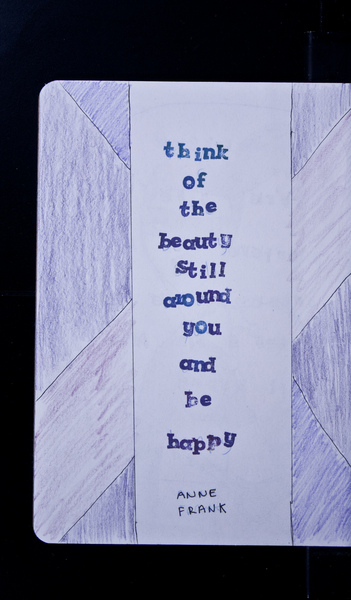 think
of
the
beauty
still
around
you
and
be
happy
ANNE
FRANK